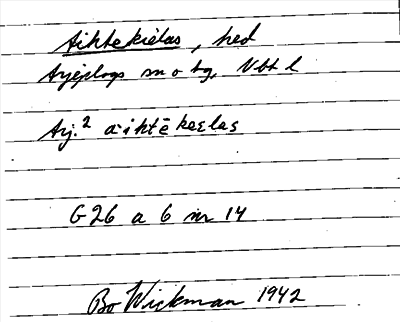 Aihtekielas, hed
Arjeplogs sn o tg, Vbt l
Arj.² aihtēkeɛlas
G 26 a 6 nr 14
Bo Wickman 1942